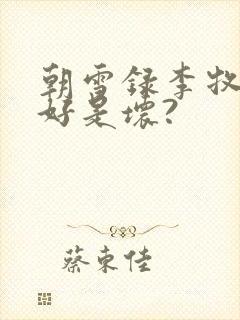 朝雪录李牧
好是坏?
蔡東佳